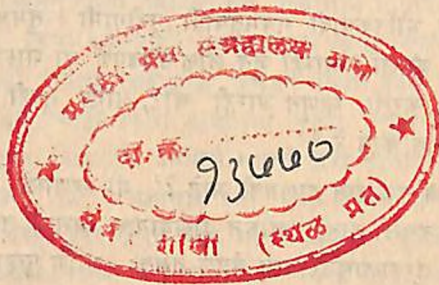 मराठी ग्रंथ संग्रहालय ठाणे
दा. क्र. ..................
१३७७०
शाखा (स्थळ प्रत)